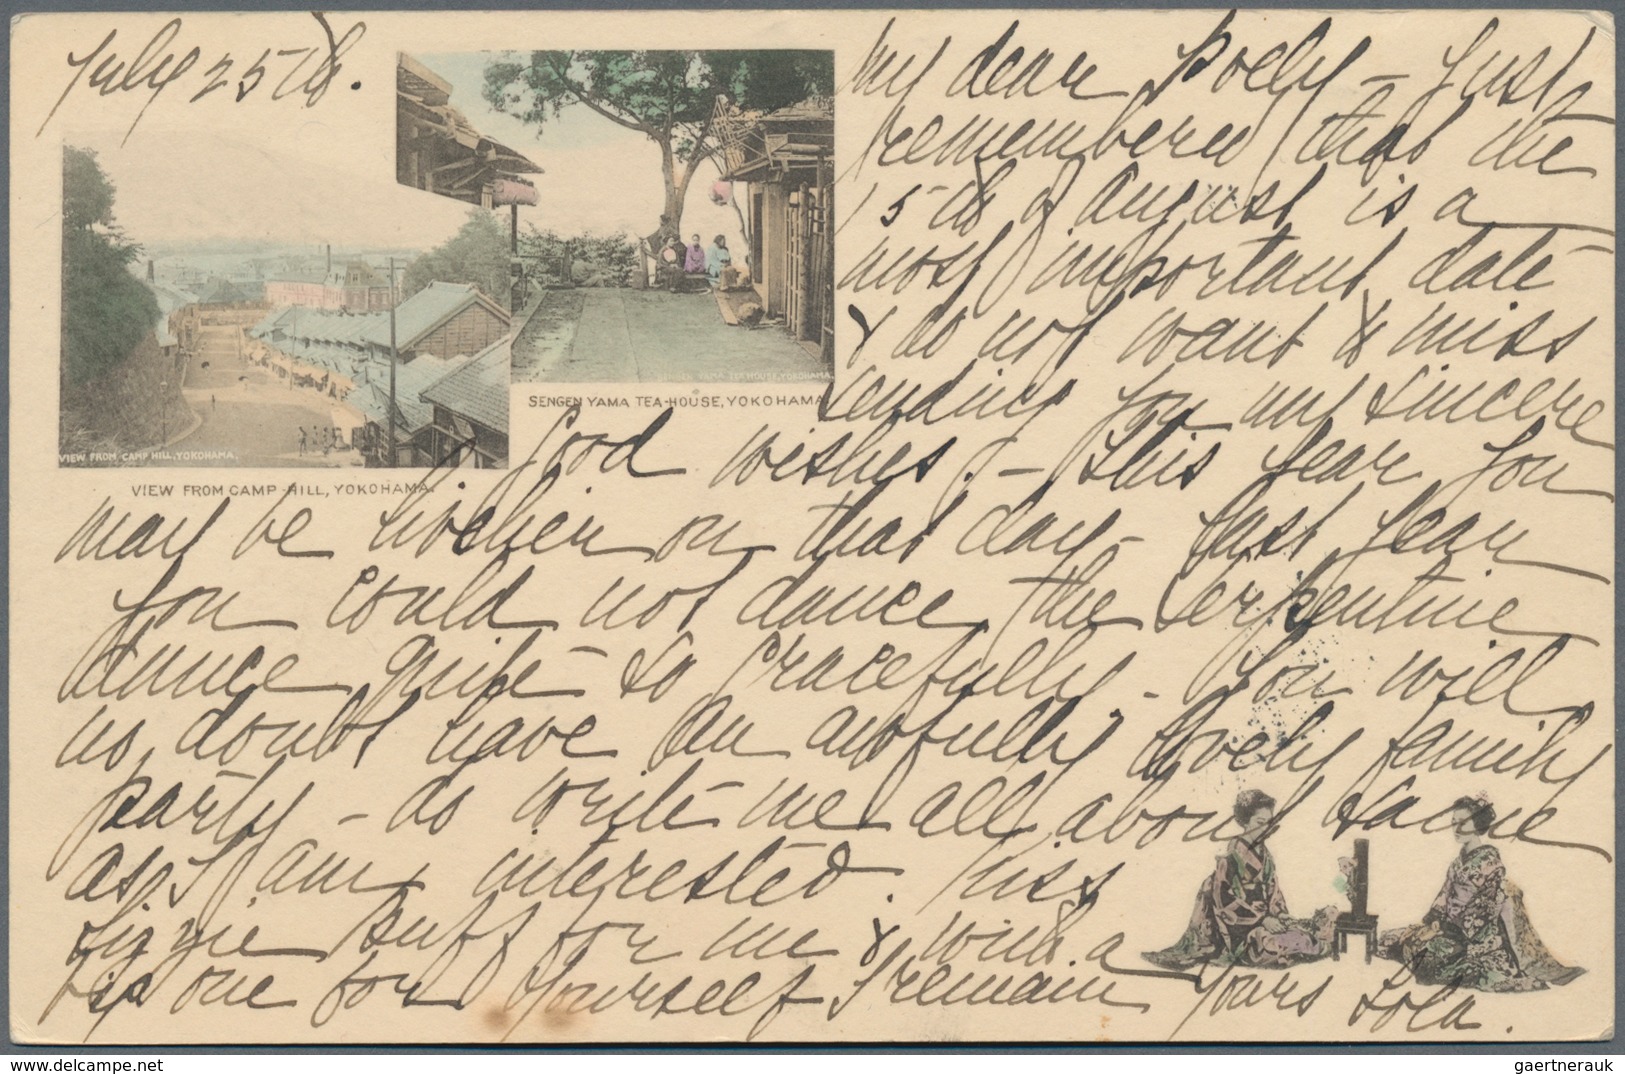 July 25th.
My dear Poely - Just
remembered that the
15th of August is a
most important date
& do not want to miss
sending you my sincere
SENGEN YAMA TEA-HOUSE, YOKOHAMA
SENGEN YAMA TEA HOUSE, YOKOHAMA.
VIEW FROM CAMP HILL, YOKOHAMA.
VIEW FROM CAMP-HILL, YOKOHAMA.
good wishes. - This year you
may be livelier on that day - last year
you could not dance the serpentine
dance quite so gracefully - You will
no doubt have an awfully lovely family
party - do write me all about same
as I am interested. Kiss
Lizzie Buff for me & with a
big one for Yourself I remain Yours Lola.
www.delcampe.net
gaertnerauk